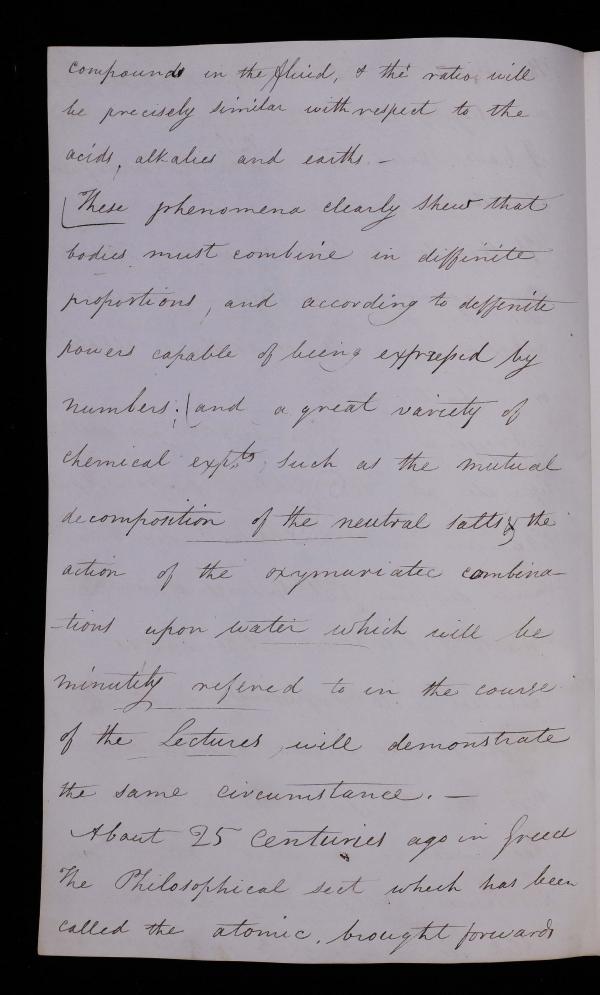 compounds in the fluid, & the ratio will
be precisely similar with respect to the
acids, alkalies and earths –
[These phenomena clearly shew that
bodies must combine in diffinite
proportions, and according to deffinite
powers capable of being expressed by
numbers;] and a great variety of
chemical expts, such as the mutual
decomposition of the neutral salts, & the
action of the oxymuriatec combina-
-tions upon water which will be
minutely refered to in the course
of the Lectures, will demonstrate
the same circumstance. –
About 25 Centuries ago in Greece
The Philosophical sect which has been
called the atomic, brought forwards